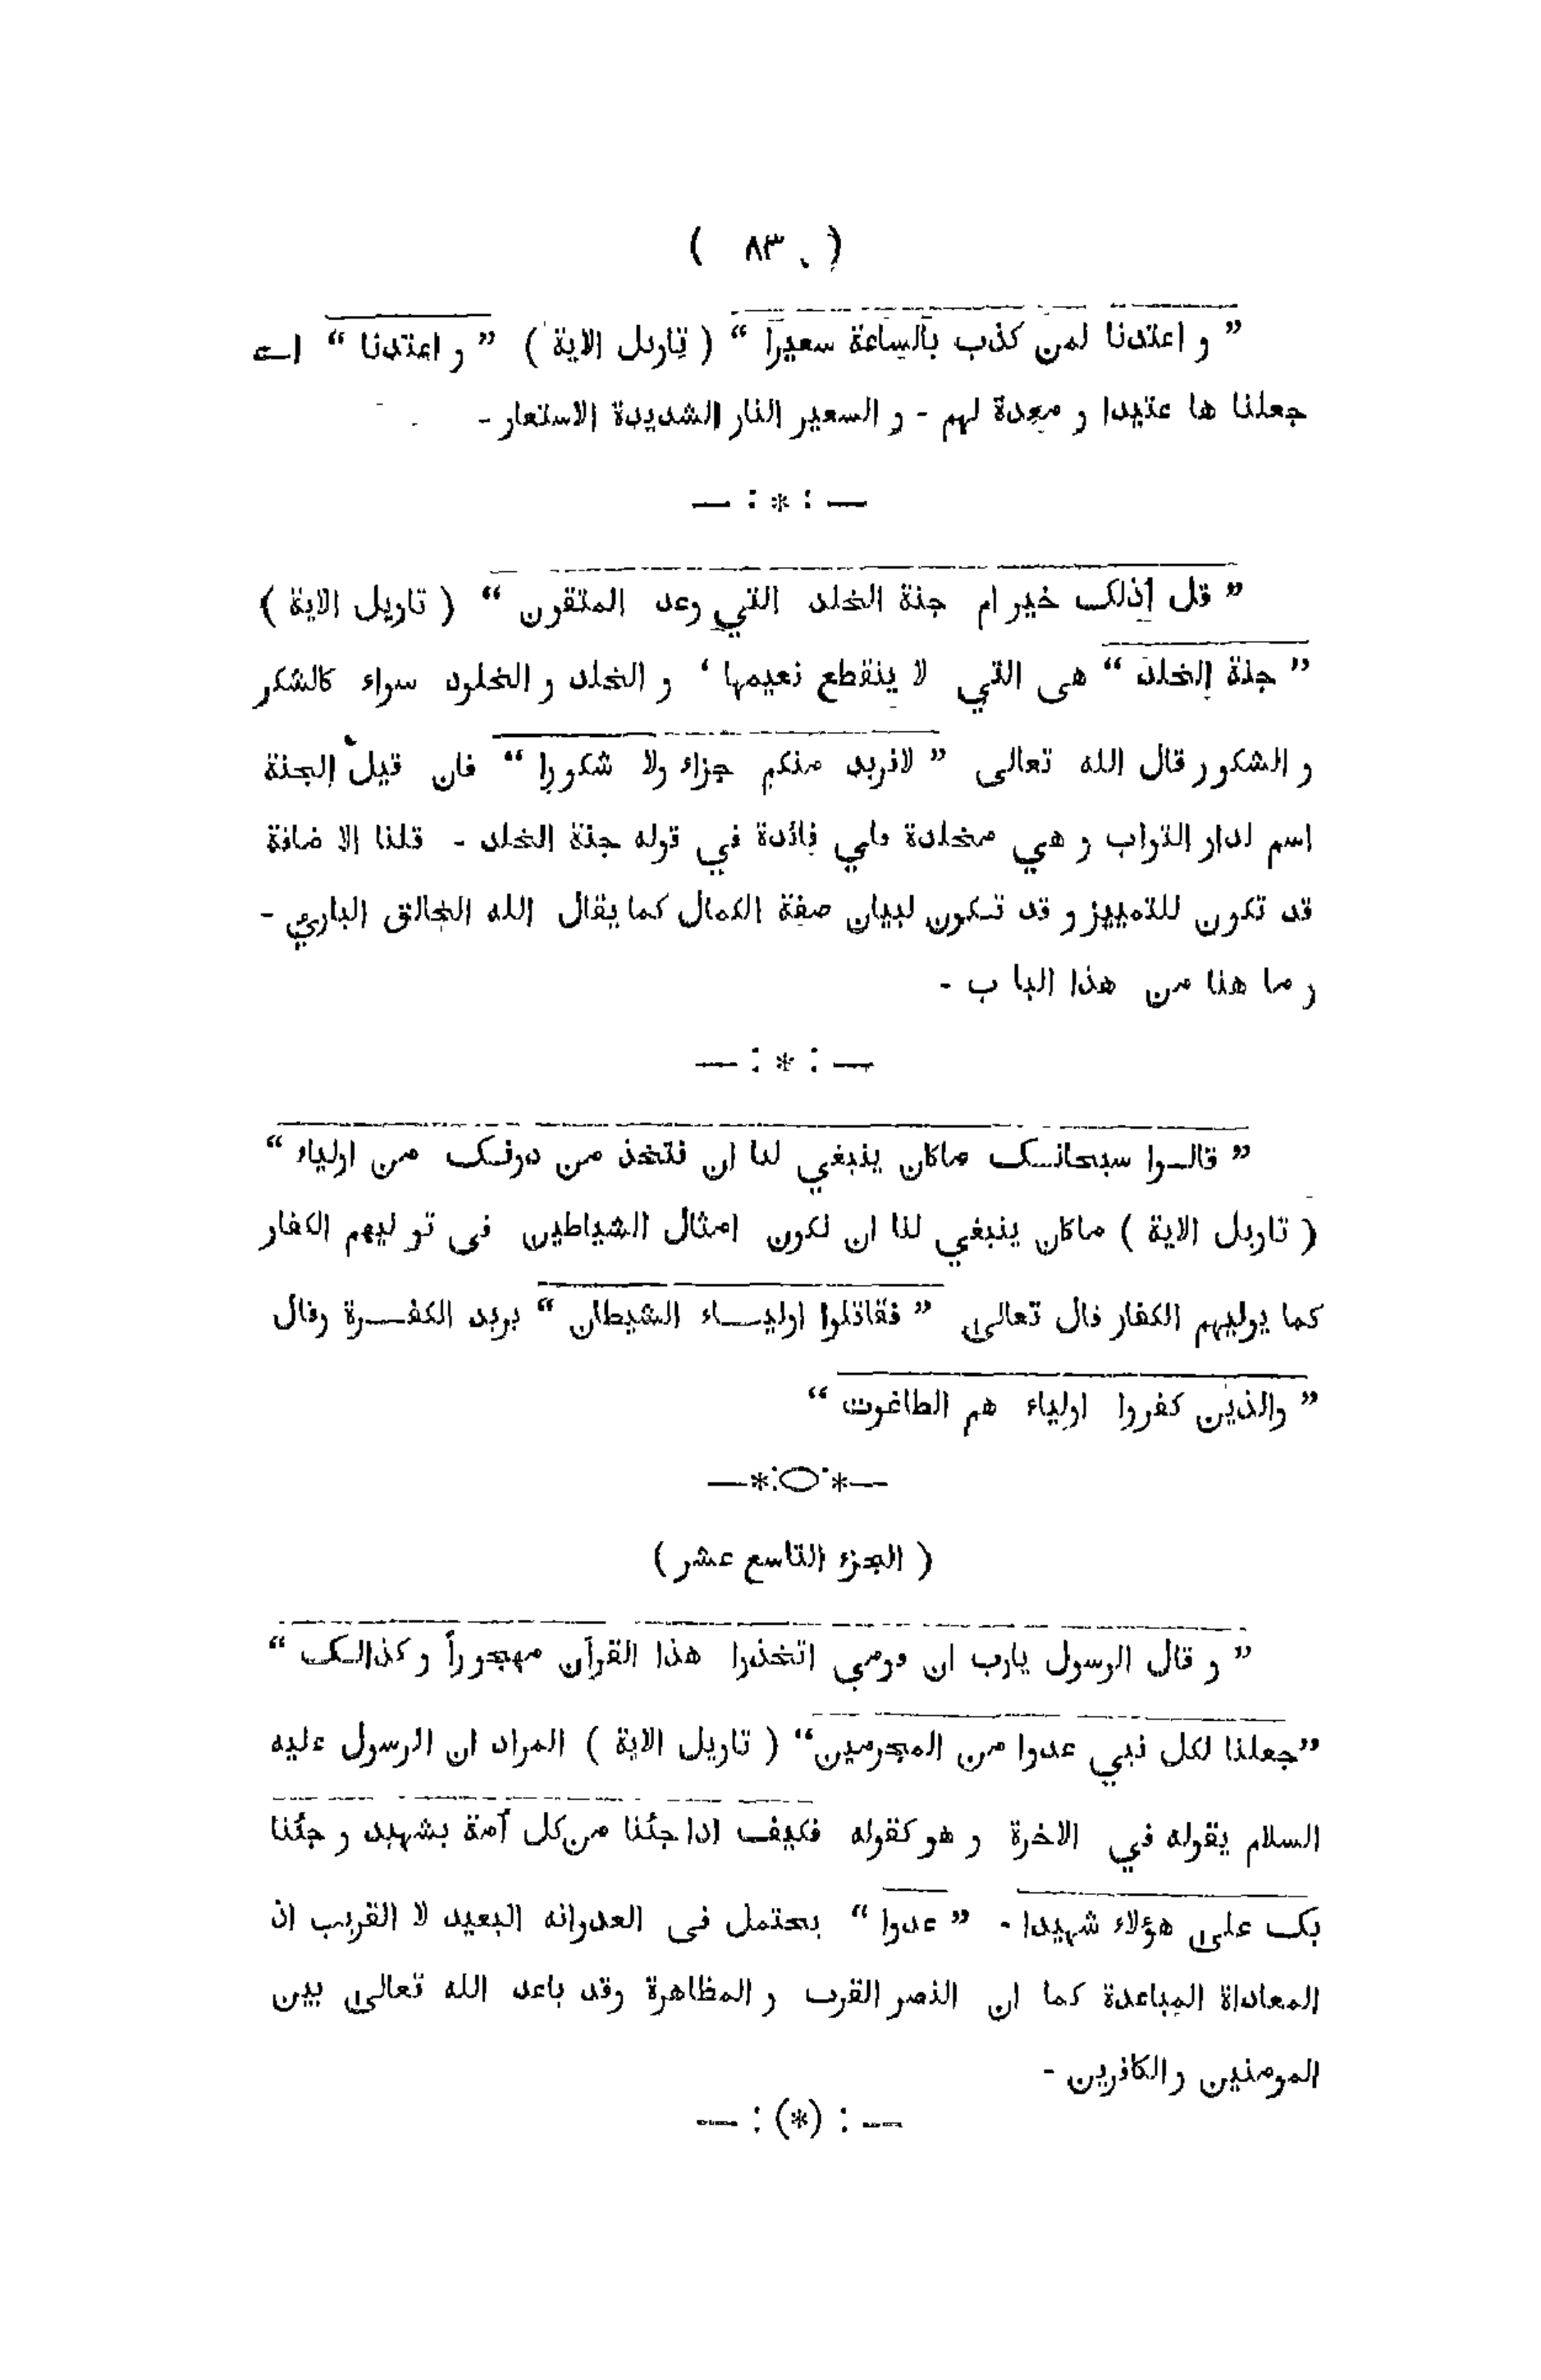 ( ٨٣ )
” و اعتدنا لمن كذب بالساعة سعيرا “ ( تاويل الاية ) ” و اعتدنا “ اے
جعلنا ها عتيدا و معدة لهم - و السعير النار الشديدة الاستعار -
— : * : —
” قل اذلک خير ام جنة الخلد التي وعد المتقون “ ( تاويل الاية )
” جنة الخلد “ هى التي لا ينقطع نعيمها ‘ و الخلد و الخلود سواء كالشكر
و الشكور قال الله تعالى ” لانريد منكم جزاء ولا شكورا “ فان قيل الجنة
اسم لدار الثواب و هي مخلدة فاي فائدة في قوله جنة الخلد - قلنا الا ضافة
قد تكون للتمييز و قد تكون لبيان صفة الكمال كما يقال الله الخالق الباري -
و ما هنا من هذا البا ب -
— : * : —
” قالوا سبحانک ماكان ينبغي لنا ان نتخذ من دونک من اولياء “
( تاويل الاية ) ماكان ينبغي لنا ان نكون امثال الشياطين فى تو ليهم الكفار
كما يوليهم الكفار قال تعالى ” فقاتلوا اولياء الشيطان “ يريد الكفرة وقال
” والذين كفروا اولياء هم الطاغوت “
—*:○:*—
( الجزء التاسع عشر )
” و قال الرسول يارب ان قومي اتخذوا هذا القرآن مهجوراً و كذالک “
”جعلنا لكل نبي عدوا من المجرمين“ ( تاويل الاية ) المراد ان الرسول عليه
السلام يقوله في الاخرة و هو كقوله فكيف اذا جئنا من كل أمة بشهيد و جئنا
بک على هؤلاء شهيدا - ” عدوا “ يحتمل فى العدوانه البعيد لا القريب اذ
المعاداة المباعدة كما ان النصر القرب و المظاهرة وقد باعد الله تعالى بين
المومنين والكافرين -
— : (*) : —